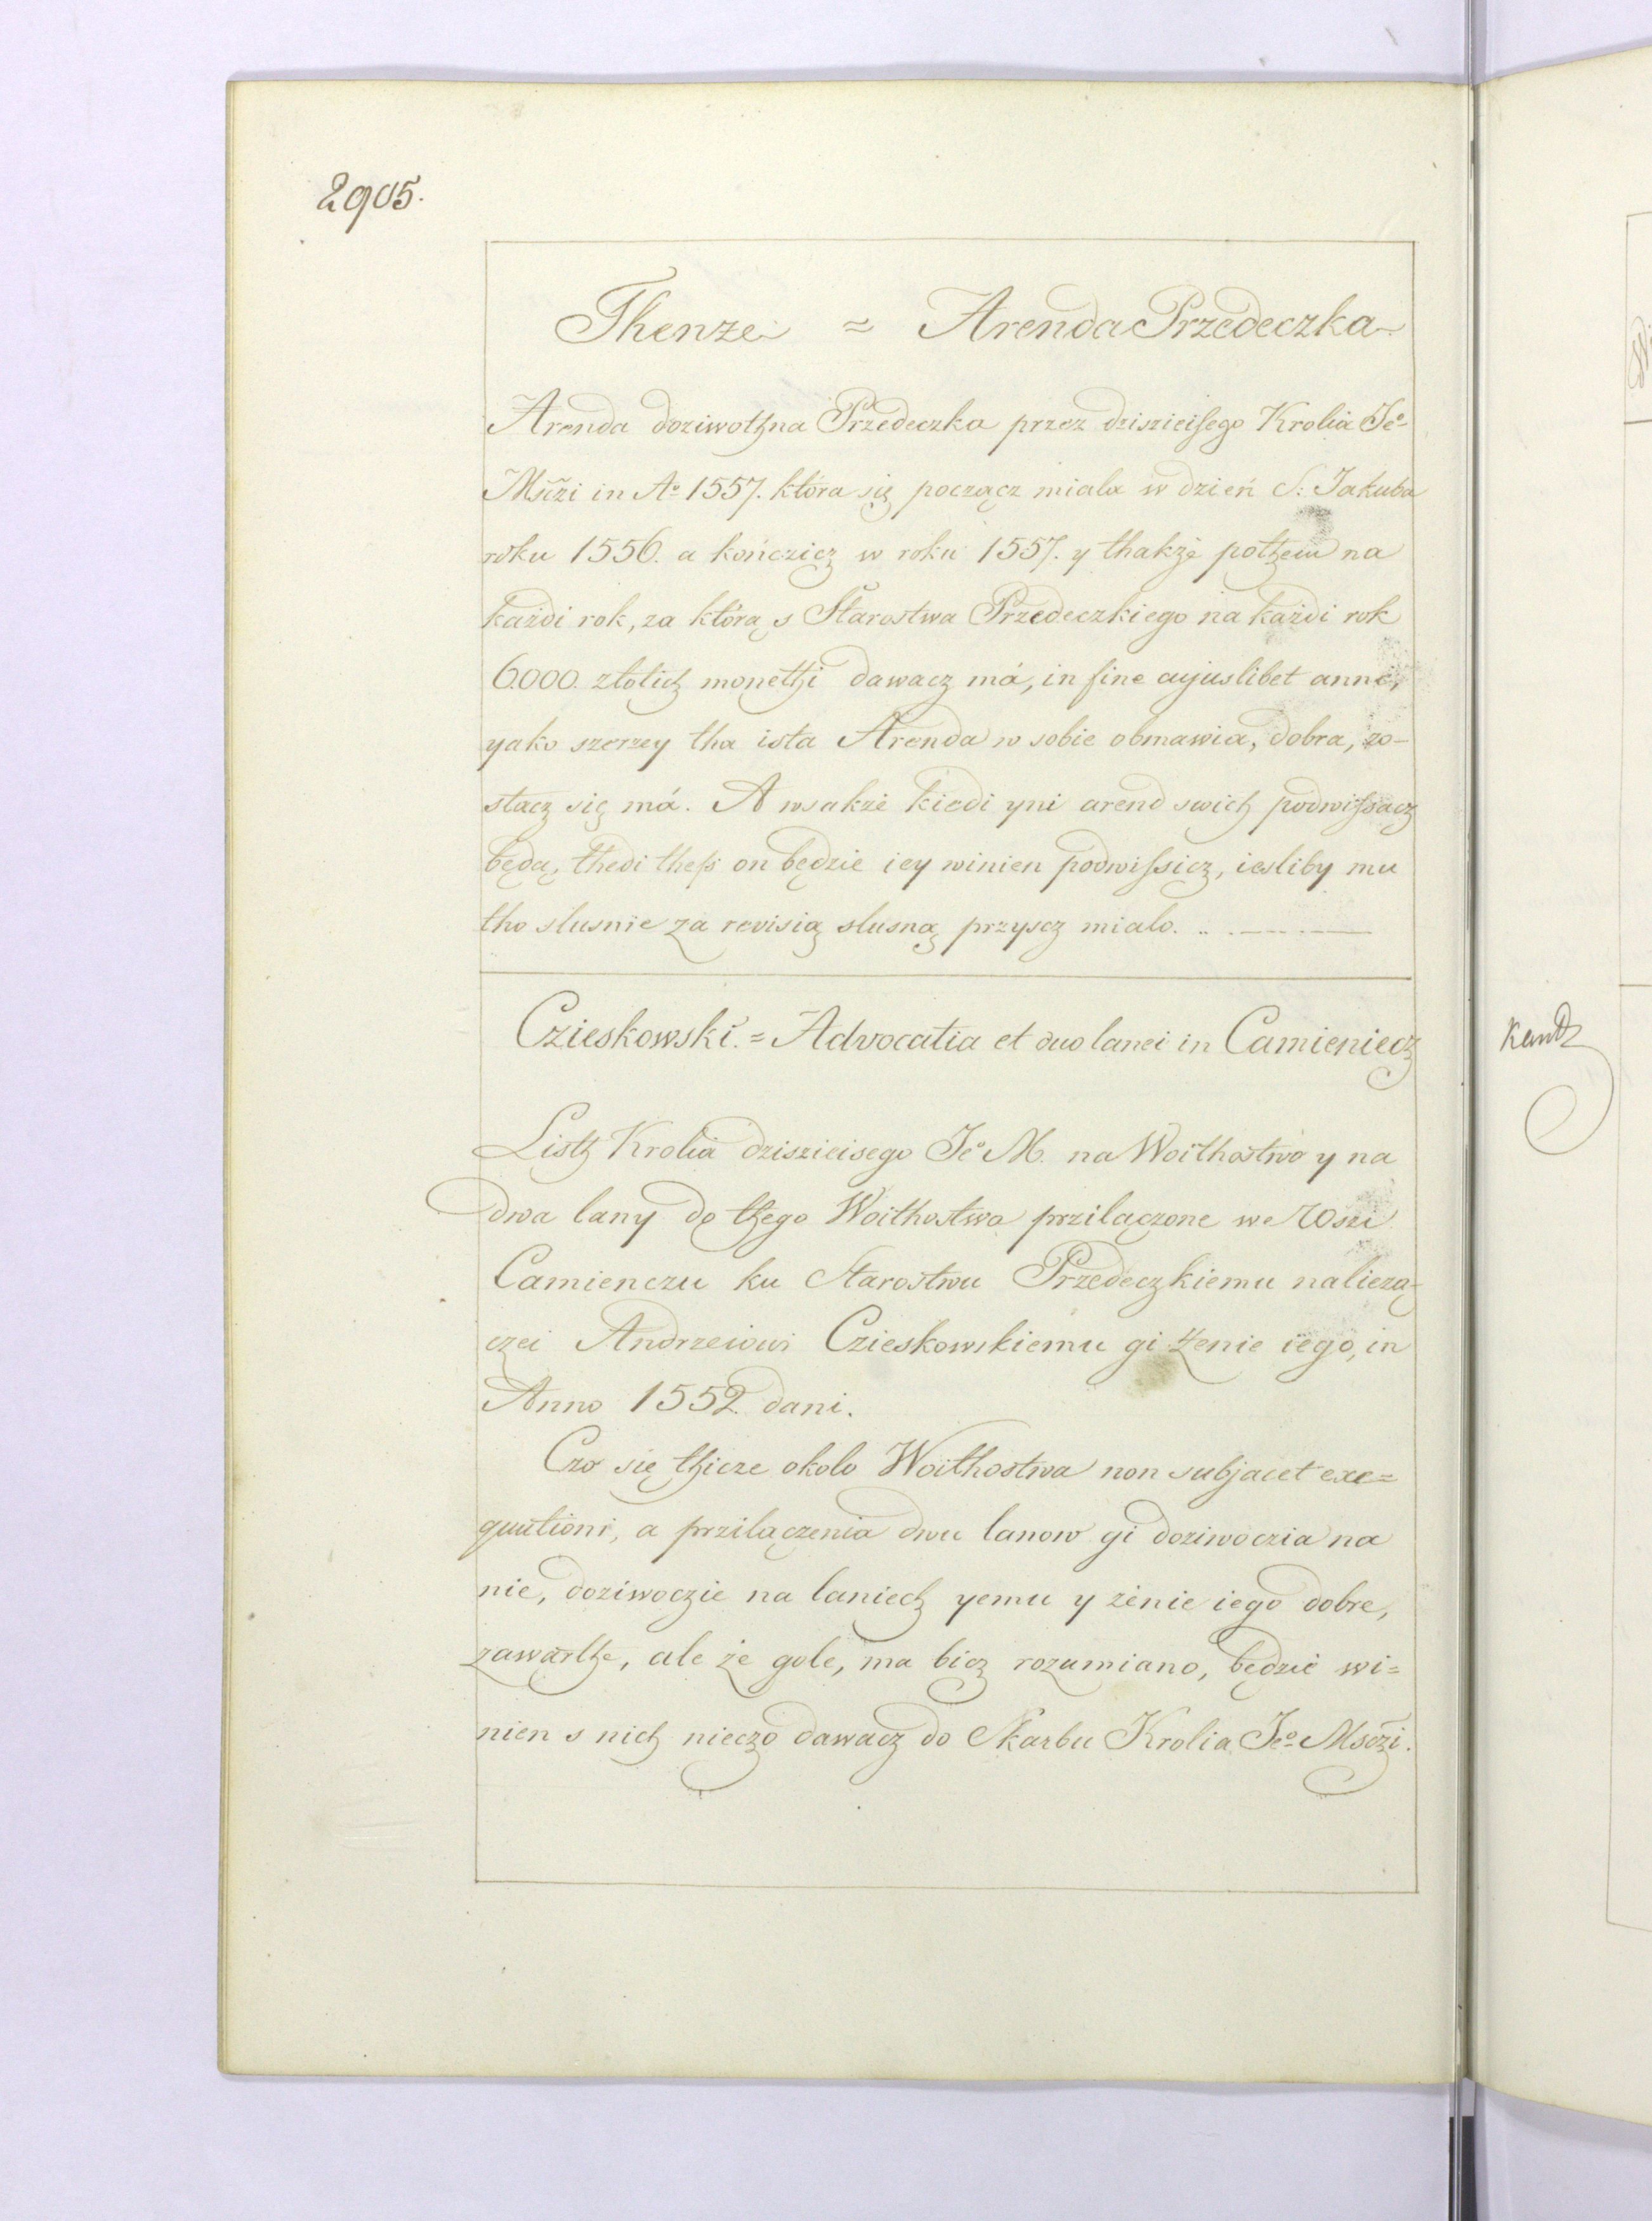 2905.
Thenze = Arenda Przedeczka
Arenda doziwothna Przedeczka przez dziszieisego Krolia Jeo
Msczi in Ao 1557. która się począcz miala w dzień S: Jakuba
roku 1556. a kończicz w roku 1557. y thakże pothem na
każdi rok, za którą s Starostwa Przedeczkiego na każdi rok
6000. zlotich monethi dawacz má, in fine cujuslibet anni,
yako szerzey tha ista Arenda w sobie obmawia, dobra, zo-
stacz się má. A wsakże kiedi yni arend swich podwissacz
będą, thedi thess on będzie iey winien podwissicz, iesliby mu
tho slusnie za revisią slusną przyscz mialo.
Czieskowski. = Advocatia et duo lanei in Camieniecz
Listh Krolia dziszieisego Jeo M. na Woithostwo y na
dwa lany do thego Woithostwa przilączone we Wszi
Camienczu ku Starostwu Przedeczkiemu nalieżą-
czei Andrzeiowi Czieskowskiemu gi żenie iego, in
Anno 1552 dani.
Czo się thicze okolo Woithostwa non subjacet exe=
quutioni, a przilączenia dwu lanow gi doziwoczia na
nie, doziwoczie na laniech yemu y żenie iego dobre,
zawarthe, ale że gole, ma bicz rozumiano, będzie wi=
nien s nich nieczo dawacz do Skarbu Krolia Jeo Msczi.